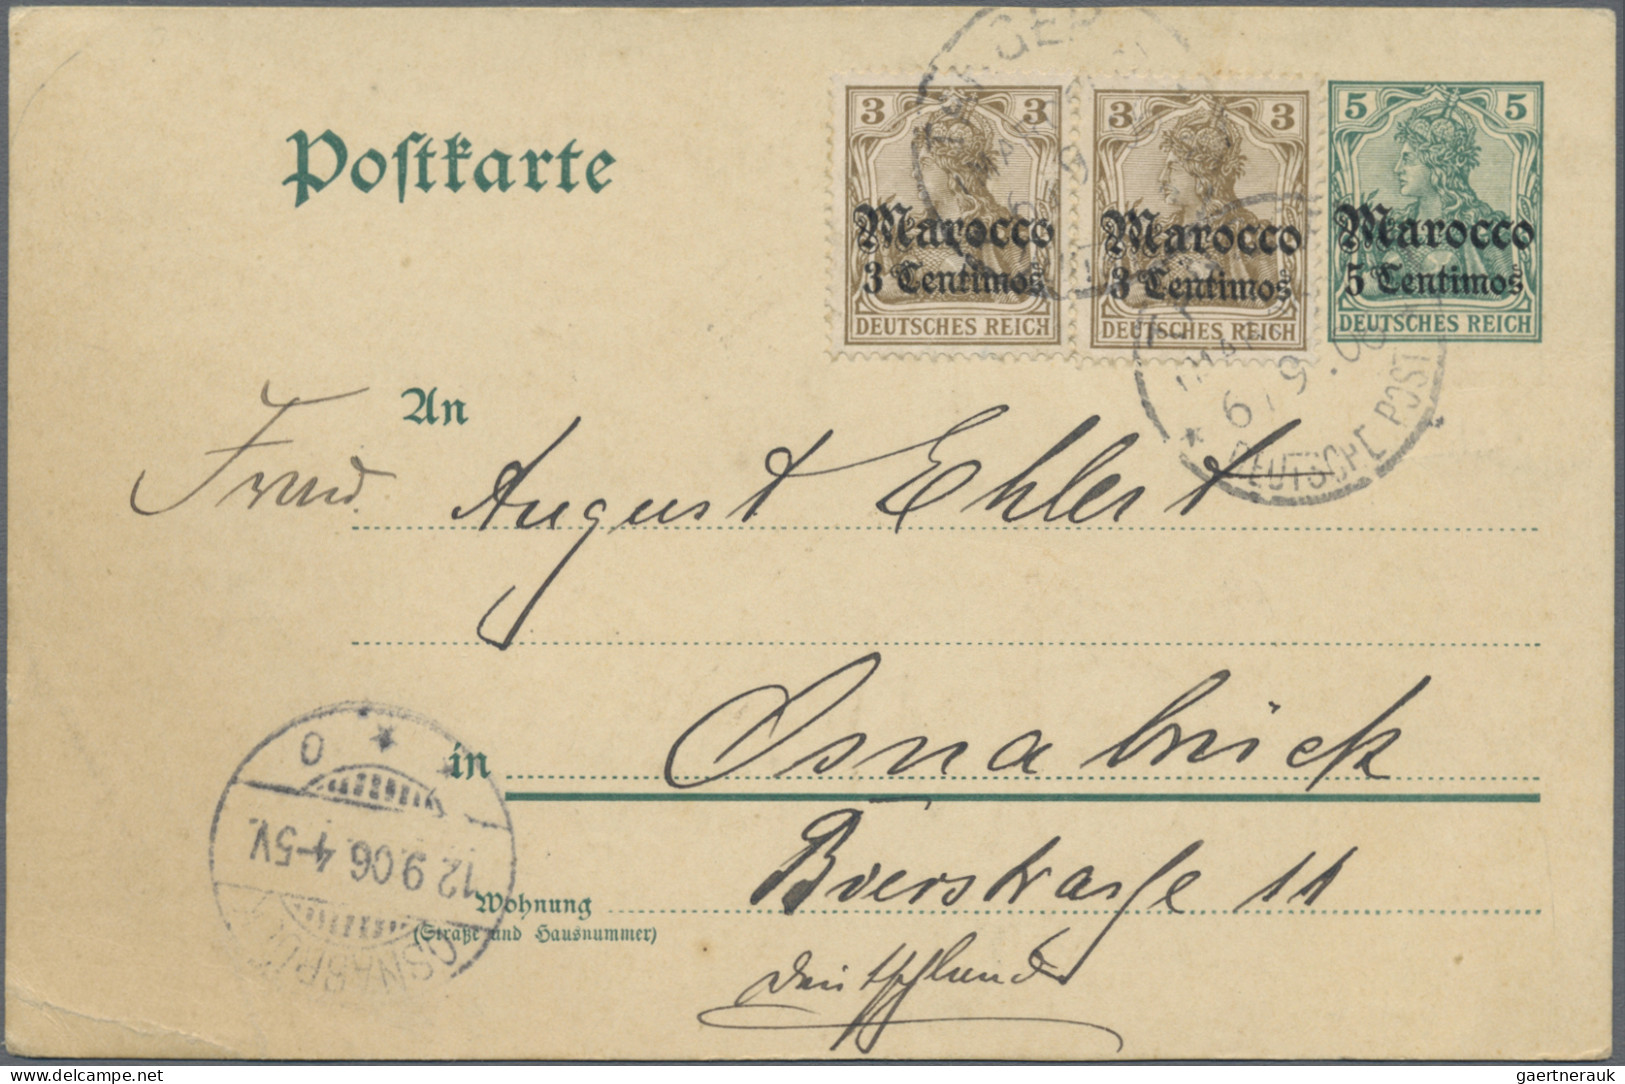 Postkarte
3 3
Marocco
3 Centimos
DEUTSCHES REICH
3 3
Marocco
3 Centimos
DEUTSCHES REICH
5 5
Marocco
5 Centimos
DEUTSCHES REICH
6/9.06
* DEUTSCHE POST
An
August Ehlert
in Osnabrück
Bierstraße 11
Wohnung
(Straße und Hausnummer)
Deutschland
OSNABRÜCK
12.9.06.4-5V.
gaertnerauk